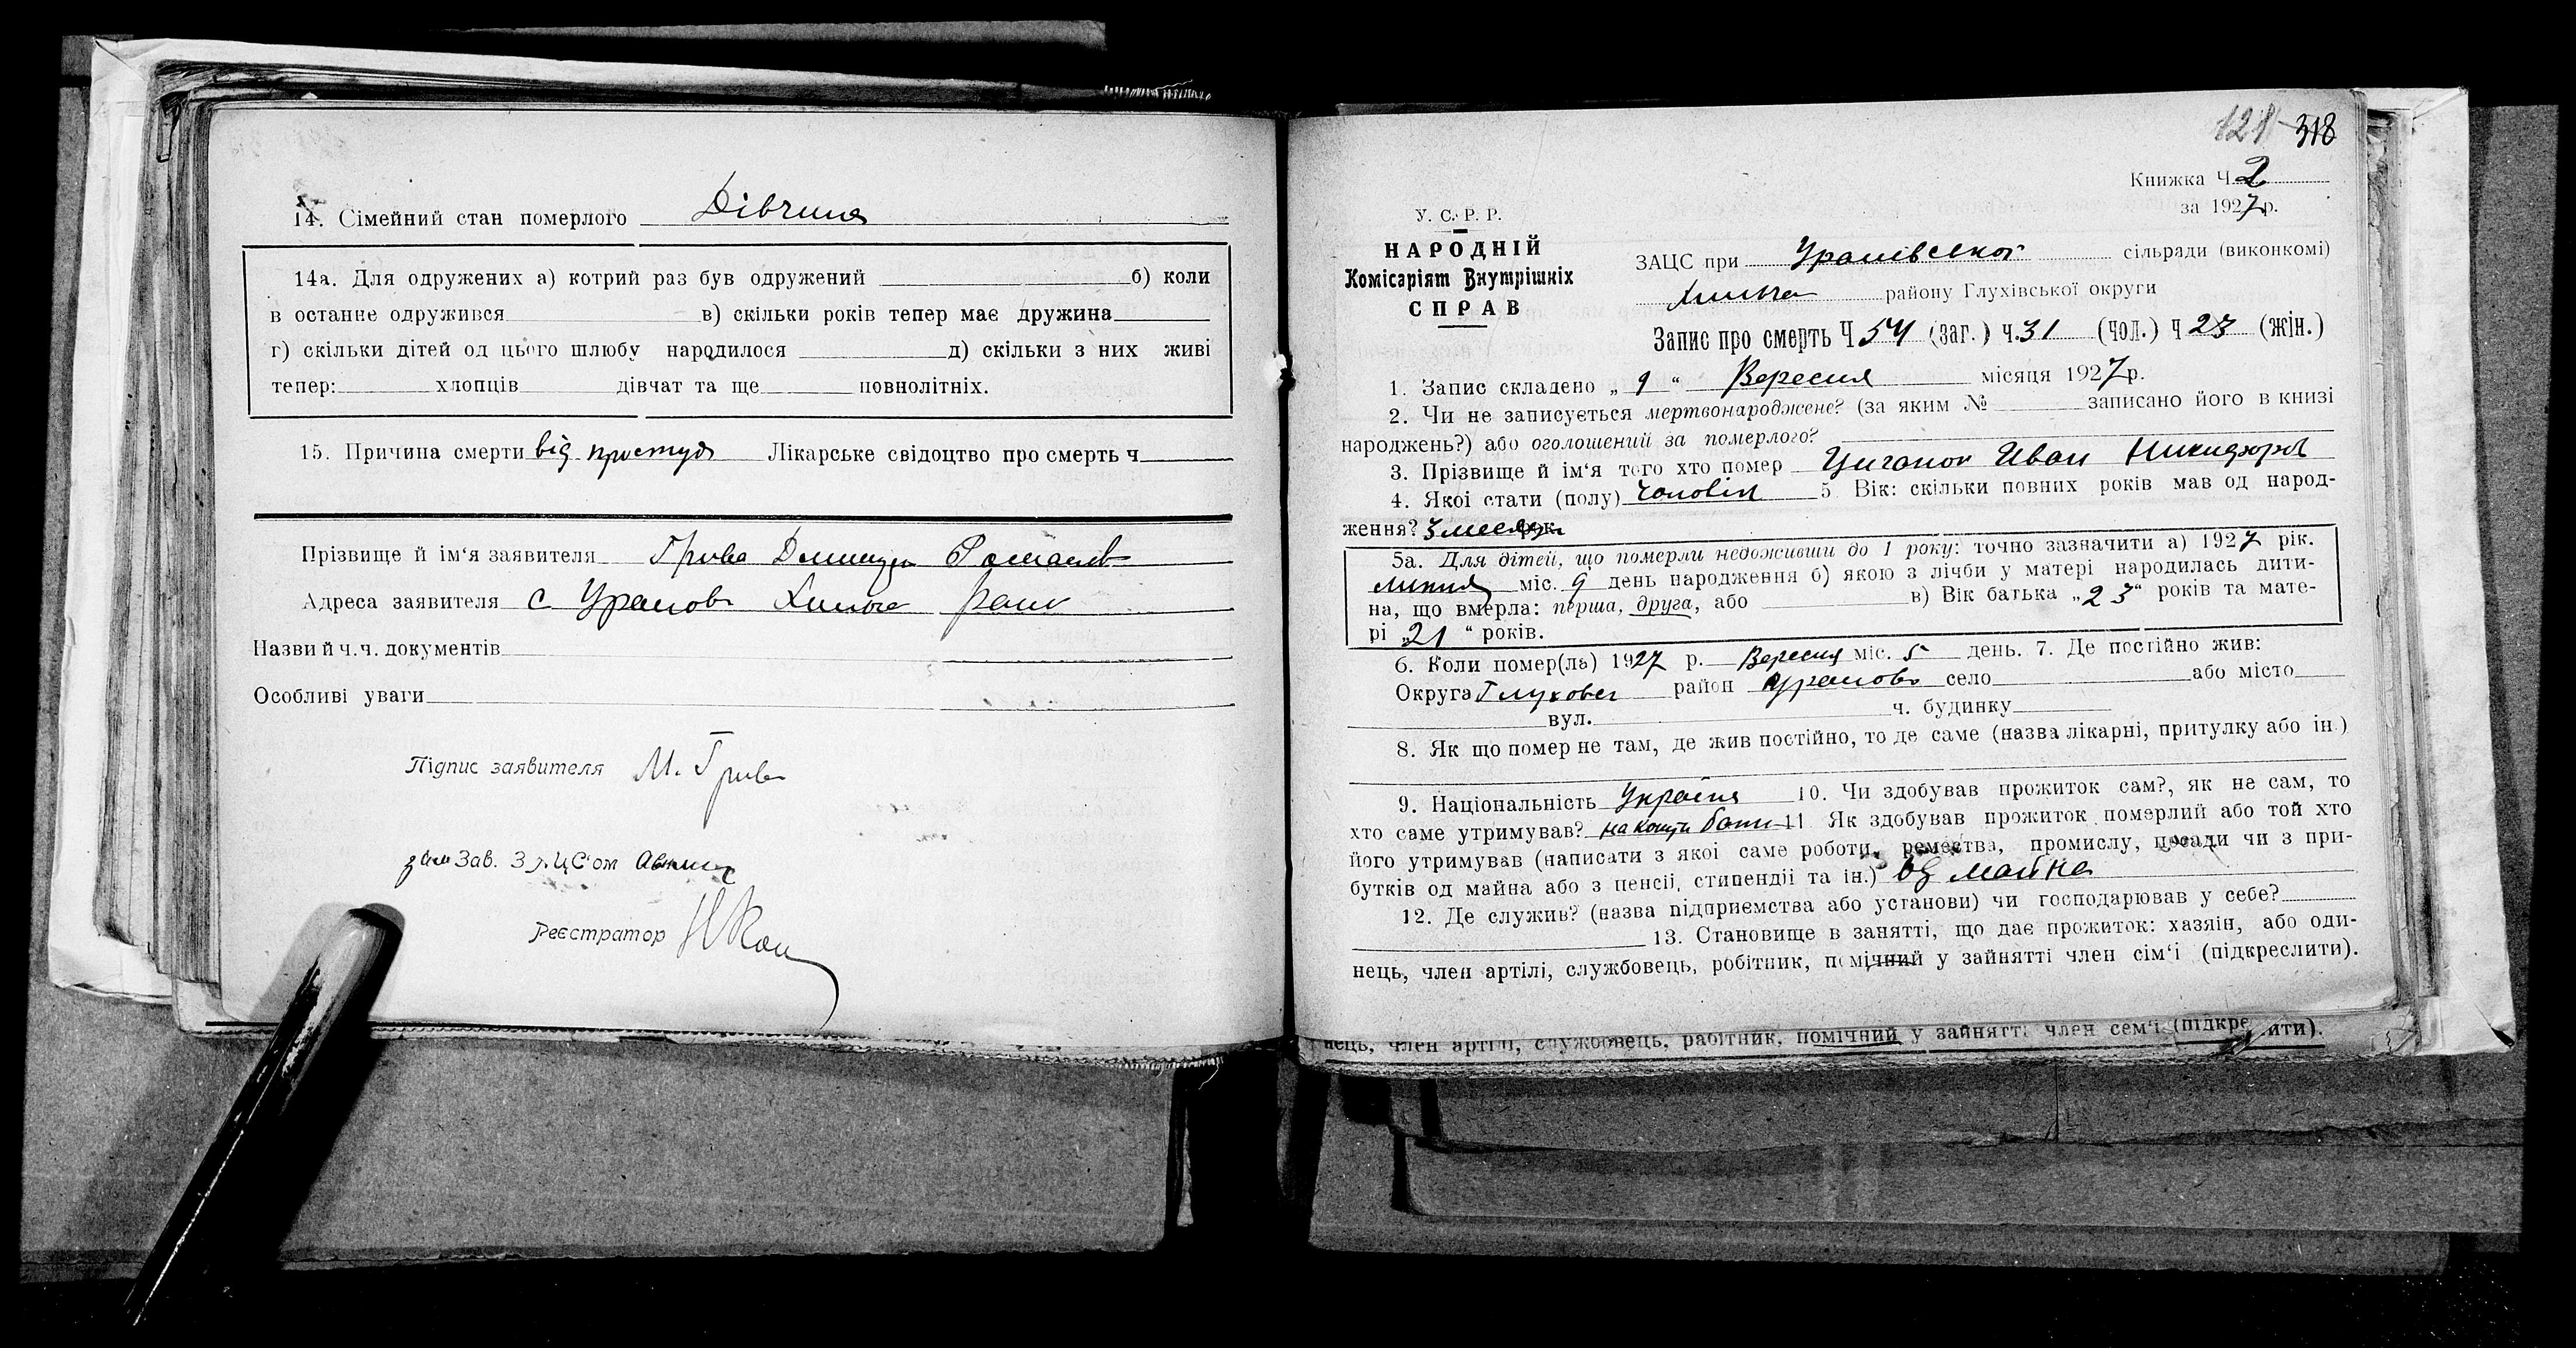 14. Сімейний стан померлого Дівчина
14а. Для одружених а) котрий раз був одружений б) коли
в останнє одружився в) скільки років тепер має дружина
г) скільки дітей од цього шлюбу народилося д) скільки з них живі
тепер: хлопців дівчат та ще повнолітніх.
15. Причина смерти від простуди Лікарське свідоцтво про смерть ч
Прізвище й ім'я заявителя Грива
Адреса заявителя с
Назви й ч.ч. документів
Особливі уваги
Підпис заявителя М. Грива
Зав. ЗАЦС'ом
Реєстратор
121 318
Книжка Ч 2
за 1927 р.
У. С. Р. Р.
НАРОДНІЙ
Комісаріят Внутрішніх
СПРАВ
ЗАЦС при сільради (виконкомі)
району Глухівської округи
Запис про смерть Ч 54 (заг.) ч. 31 (чол.) ч 23 (жін.)
1. Запис складено „ 9 “ Вересня місяця 1927 р.
2. Чи не записується мертвонароджене? (за яким № записано його в книзі
народжень?) або оголошений за померлого?
3. Прізвище й ім'я того хто помер Циганок Иван Никифоров
4. Якоі стати (полу) чоловік 5. Вік: скільки повних років мав од народ-
ження? 3
5а. Для дітей, що померли недоживши до 1 року: точно зазначити а) 1927 рік.
липня міс. 9 день народження б) якою з лічби у матері народилась дити-
на, що вмерла: перша, друга, або в) Вік батька „23“ років та мате-
рі „21“ років.
6. Коли помер(ла) 1927 р. Вересня міс. 5 день. 7. Де постійно жив:
Округа район село або місто
вул. ч. будинку
8. Як що помер не там, де жив постійно, то де саме (назва лікарні, притулку або ін.)
9. Національність 10. Чи здобував прожиток сам?, як не сам, то
хто саме утримував? на кошти 11 Як здобував прожиток померлий або той хто
його утримував (написати з якоі саме роботи, ремества, промислу, посади чи з при-
бутків од майна або з пенсіі, стипендіі та ін.) від майна
12. Де служив? (назва підприємства або установи) чи господарював у себе?
13. Становище в занятті, що дає прожиток: хазяін, або оди-
нець, член артілі, службовець, робітник, помічний у зайнятті член сім'і (підкреслити).
нець, член артілі, службовець, рабітник, помічний у зайнятті член сем'і (підкре ити).